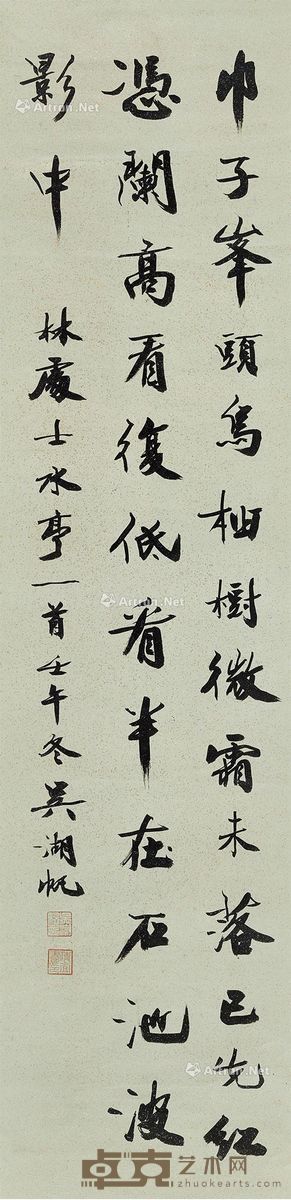 巾子峯頭烏桕樹微霜未落已先紅
憑闌高看復低看半在石池波
影中
林處士水亭一首壬午冬吳湖帆
Artron.Net
Artron.Net
Artron.Net
Artron.Net
Artron.Net
卓克艺术网
zhuokearts.com